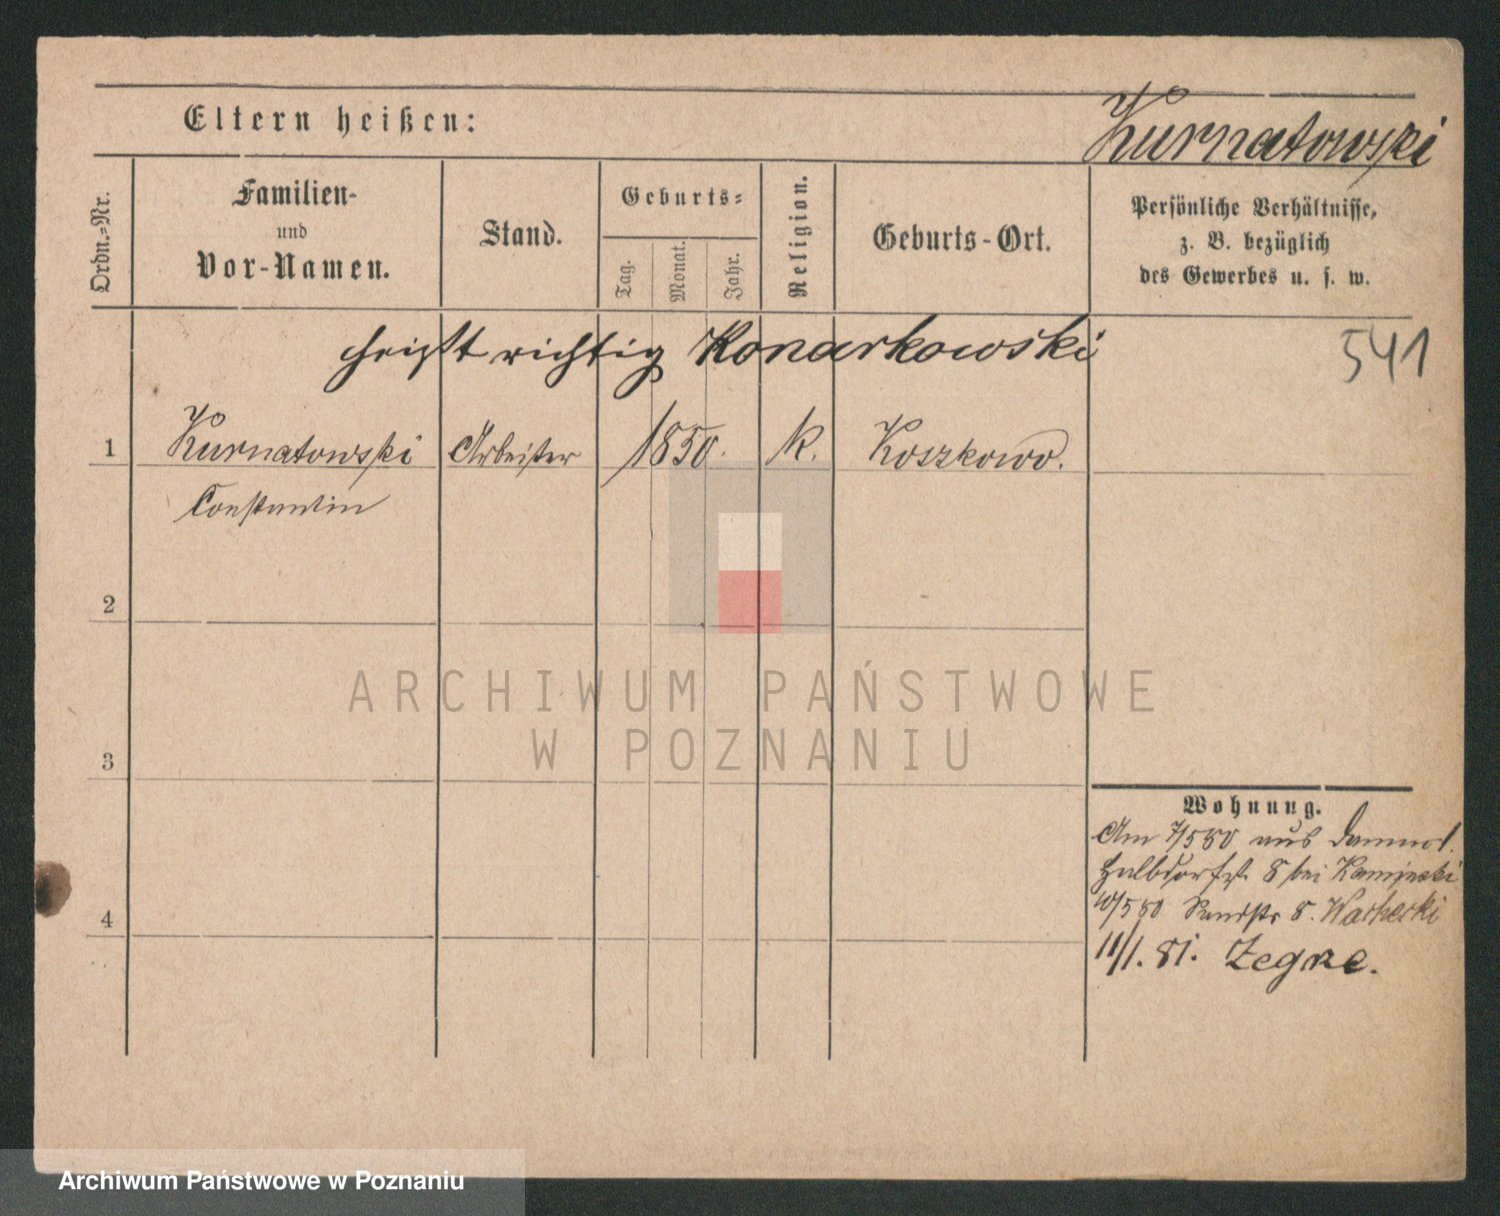 Eltern heißen:
Kurnatowski
Ordn.-Nr.
Familien-
und
Vor-Namen.
Stand.
Geburts-
Tag.
Monat.
Jahr.
Religion.
Geburts-Ort.
Persönliche Verhältnisse,
z. B. bezüglich
des Gewerbes u. s. w.
heißt richtig Konarkowski
541
1 Kurnatowski Arbeiter 1850. k. Koszkowo.
Constantin
2
3
4
Wohnung.
Am 7/5 80 aus
Halbdorfst. 8 bei Kaminski
10/5 80 Sandstr 8.
11/1. 81. Zegrze.
ARCHIWUM PAŃSTWOWE
W POZNANIU
Archiwum Państwowe w Poznaniu